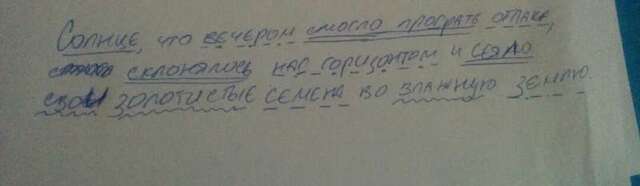 Солнце, что вечером смогло програть отпаке,
склонялось нас горизонтом и сеяло
свои золотистые семена во влажную землю.